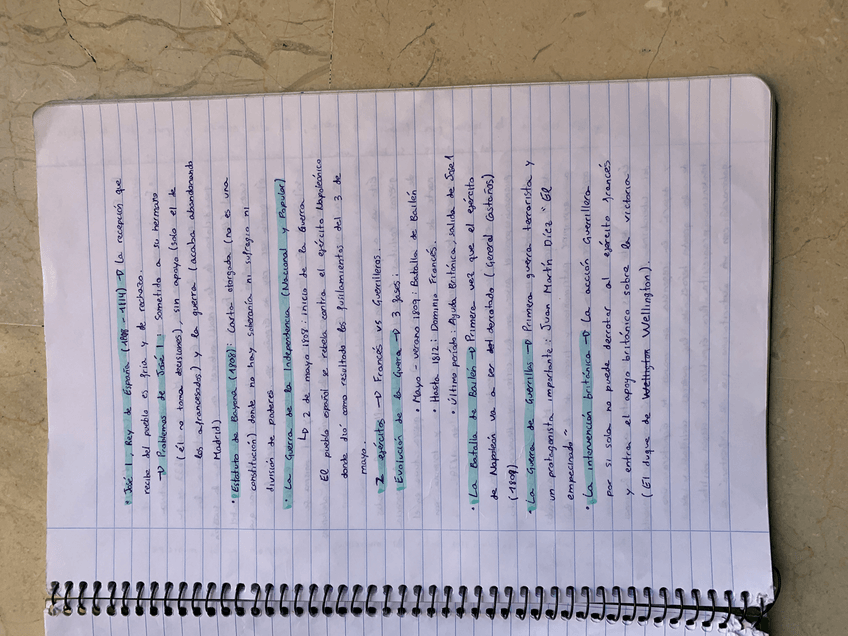 • José I, Rey de España (1808 - 1814) → La recepción que
recibe del pueblo es fría y de rechazo.
→ Problemas de José I: Sometido a su hermano
(él no toma decisiones), sin apoyo (solo el de
los afrancesados) y la guerra (acaba abandonando
Madrid)
• Estatuto de Bayona (1808): Carta otorgada (no es una
constitución) donde no hay soberanía ni sufragio ni
división de poderes
• La Guerra de la Independencia (Nacional y Popular)
↳ 2 de mayo 1808: inicio de la Guerra
El pueblo español se rebela contra el ejército Napoleónico
donde dió como resultado los fusilamientos del 3 de
mayo.
2 ejércitos → Francés vs Guerrilleros.
Evolución de la Guerra → 3 fases:
• Mayo - verano 1809: Batalla de Bailén
• Hasta 1812: Dominio Francés.
• Último periodo: Ayuda Británica, salida de José 1
• La Batalla de Bailén → Primera vez que el ejército
de Napoleón va a ser derrotado (General Castaños)
(1808)
• La Guerra de Guerrillas → Primera guerra terrorista y
un protagonista importante: Juan Martín Díez " El
empecinado ~
• La intervención británica → La acción Guerrillera
por si sola no puede derrotar al ejército francés
y entra el apoyo británico sobre la victoria
(El duque de Wellington).